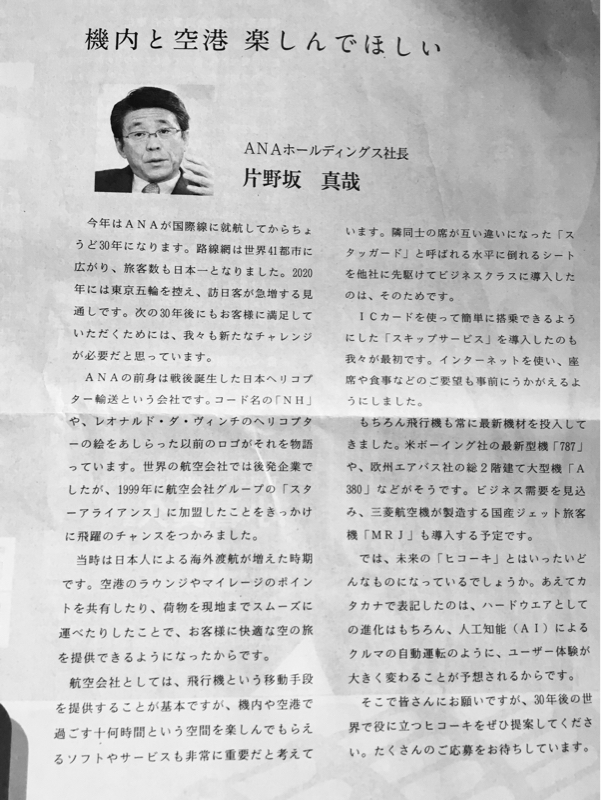 機内と空港 楽しんでほしい
ANAホールディングス社長
片野坂 真哉
今年はANAが国際線に就航してからちょ
うど30年になります。路線網は世界41都市に
広がり、旅客数も日本一となりました。2020
年には東京五輪を控え、訪日客が急増する見
通しです。次の30年後にもお客様に満足して
いただくためには、我々も新たなチャレンジ
が必要だと思っています。
ANAの前身は戦後誕生した日本ヘリコプ
ター輸送という会社です。コード名の「NH」
や、レオナルド・ダ・ヴィンチのヘリコプタ
ーの絵をあしらった以前のロゴがそれを物語
っています。世界の航空会社では後発企業で
したが、1999年に航空会社グループの「スタ
ーアライアンス」に加盟したことをきっかけ
に飛躍のチャンスをつかみました。
当時は日本人による海外渡航が増えた時期
です。空港のラウンジやマイレージのポイン
トを共有したり、荷物を現地までスムーズに
運べたりしたことで、お客様に快適な空の旅
を提供できるようになったからです。
航空会社としては、飛行機という移動手段
を提供することが基本ですが、機内や空港で
過ごす十何時間という空間を楽しんでもらえ
るソフトやサービスも非常に重要だと考えて
います。隣同士の席が互い違いになった「ス
タッガード」と呼ばれる水平に倒れるシート
を他社に先駆けてビジネスクラスに導入した
のは、そのためです。
ICカードを使って簡単に搭乗できるよう
にした「スキップサービス」を導入したのも
我々が最初です。インターネットを使い、座
席や食事などのご要望も事前にうかがえるよ
うにしました。
もちろん飛行機も常に最新機材を投入して
きました。米ボーイング社の最新型機「787」
や、欧州エアバス社の総2階建て大型機「A
380」などがそうです。ビジネス需要を見込
み、三菱航空機が製造する国産ジェット旅客
機「MRJ」も導入する予定です。
では、未来の「ヒコーキ」とはいったいど
んなものになっているでしょうか。あえてカ
タカナで表記したのは、ハードウエアとして
の進化はもちろん、人工知能（AI）による
クルマの自動運転のように、ユーザー体験が
大きく変わることが予想されるからです。
そこで皆さんにお願いですが、30年後の世
界で役に立つヒコーキをぜひ提案してくださ
い。たくさんのご応募をお待ちしています。